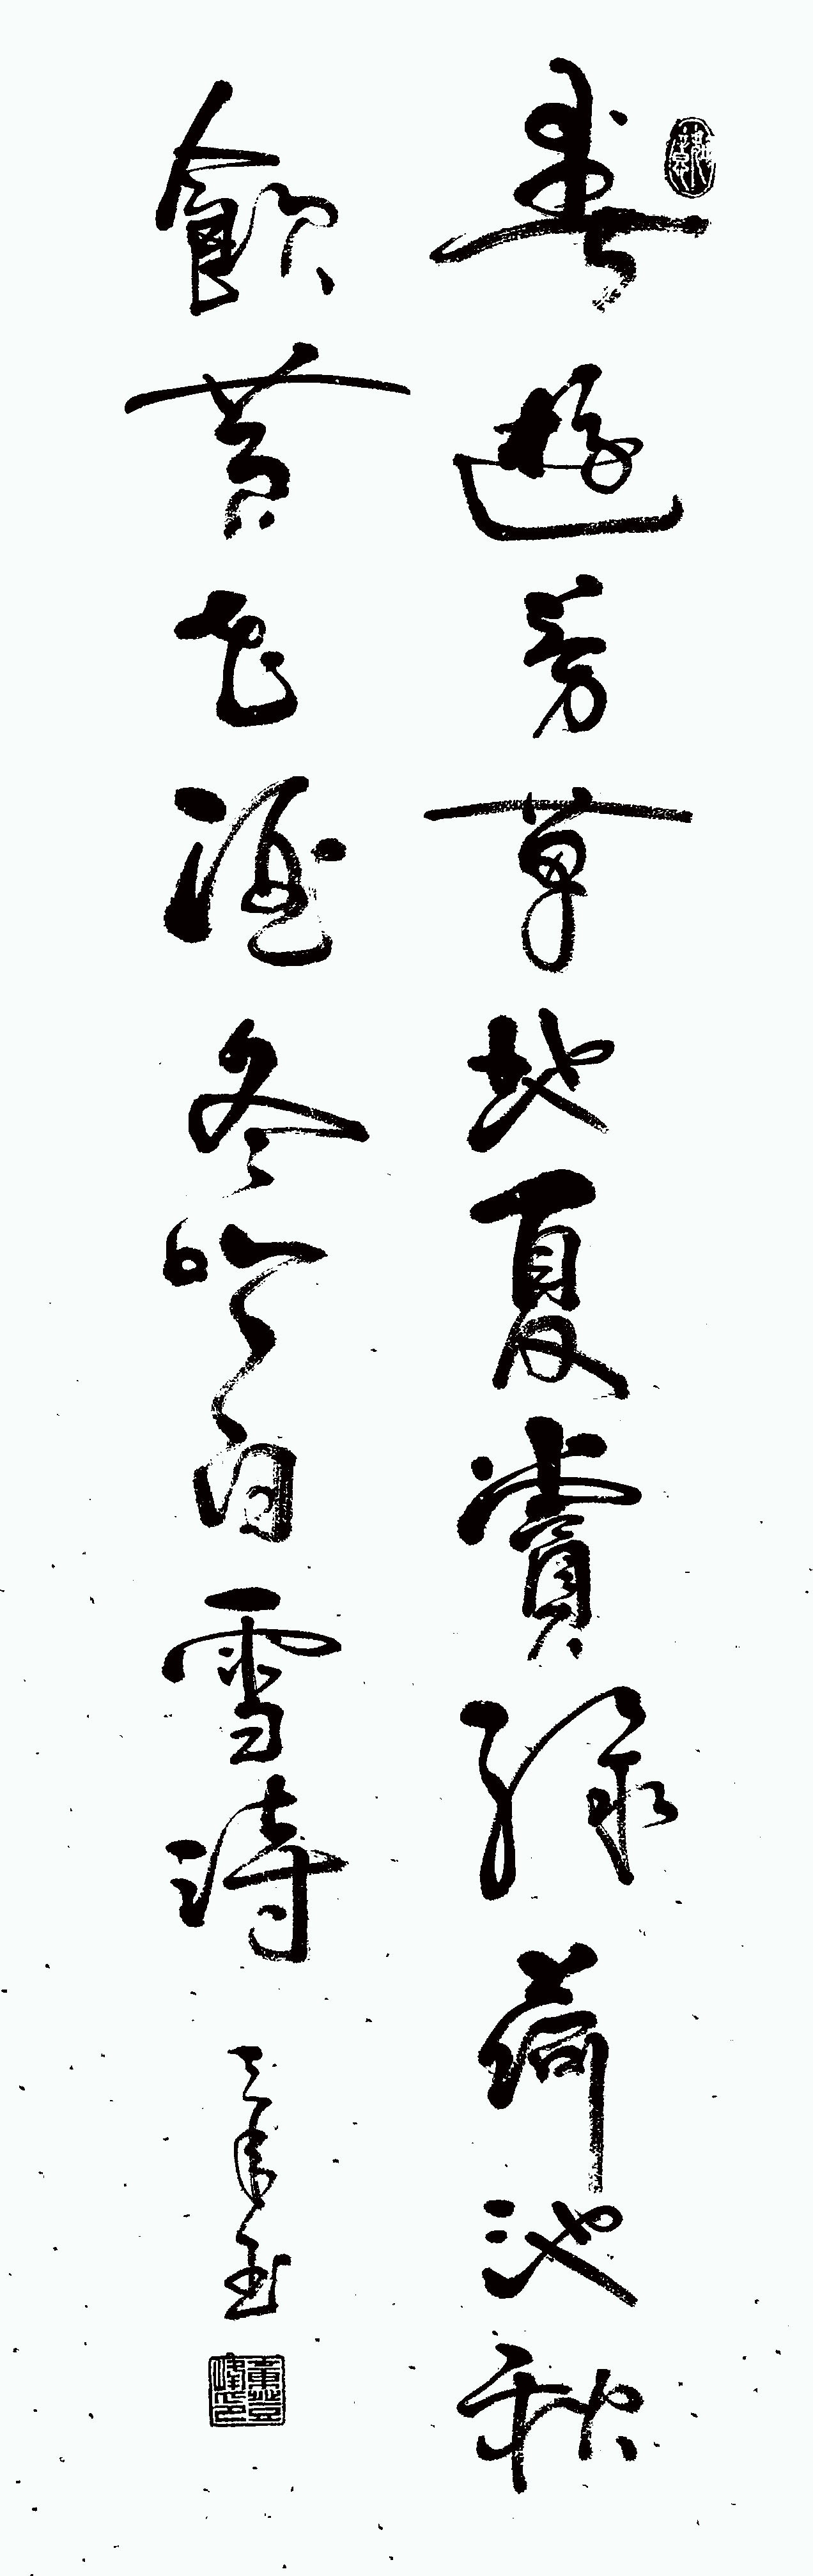 春遊芳草地夏賞綠荷池秋
飲黃花酒冬吟白雪詩